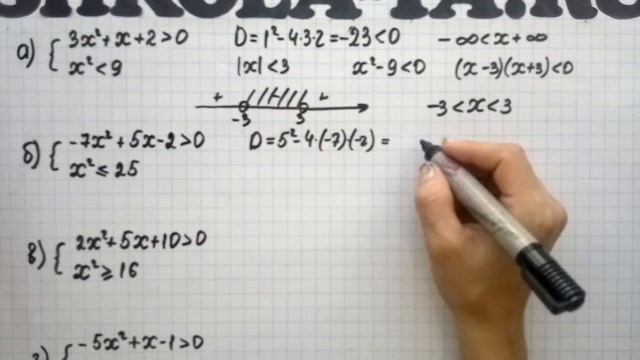 SHKOLA-YA.RU
а) { 3x²+x+2>0 D=1²-4·3·2=-23<0 -∞<x+∞
x²<9 |x|<3 x²-9<0 (x-3)(x+3)<0
+ - +
-3 3 -3<x<3
б) { -7x²+5x-2>0 D=5²-4·(-7)·(-2)=
x²≤25
в) { 2x²+5x+10>0
x²≥16
г) { -5x²+x-1>0